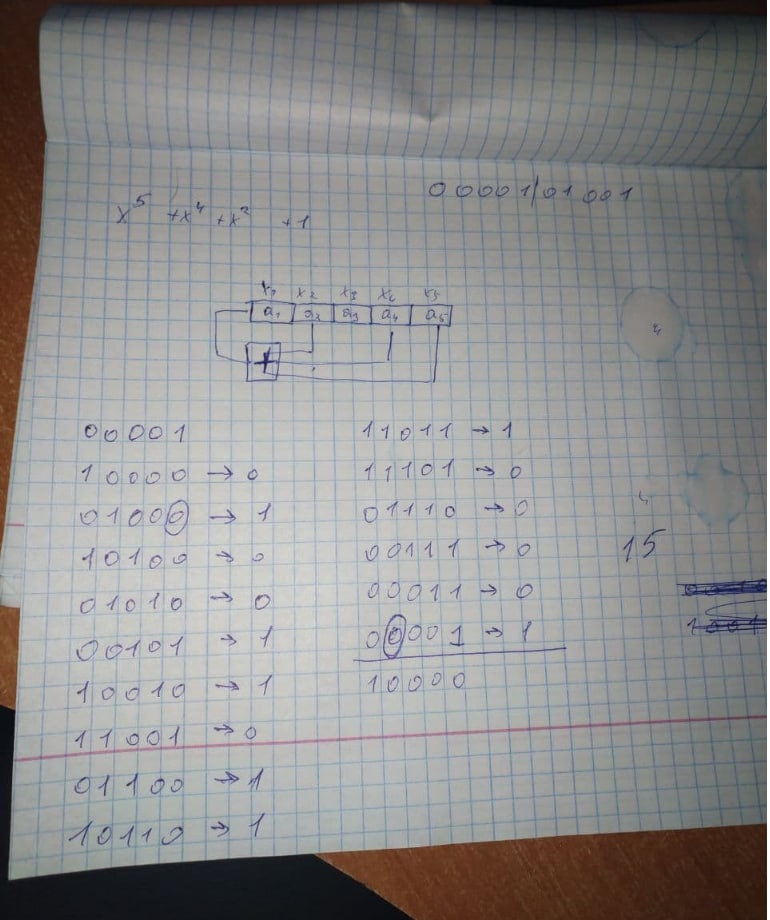 00001/01001
x⁵ +x⁴ +x² +1
x₁ x₂ x₃ x₄ x₅
a₁ a₂ a₃ a₄ a₅
+
00001
10000 → 0
01000 → 1
10100 → 0
01010 → 0
00101 → 1
10010 → 1
11001 → 0
01100 → 1
10110 → 1
11011 → 1
11101 → 0
01110 → 0
00111 → 0
00011 → 0
00001 → 1
10000
15